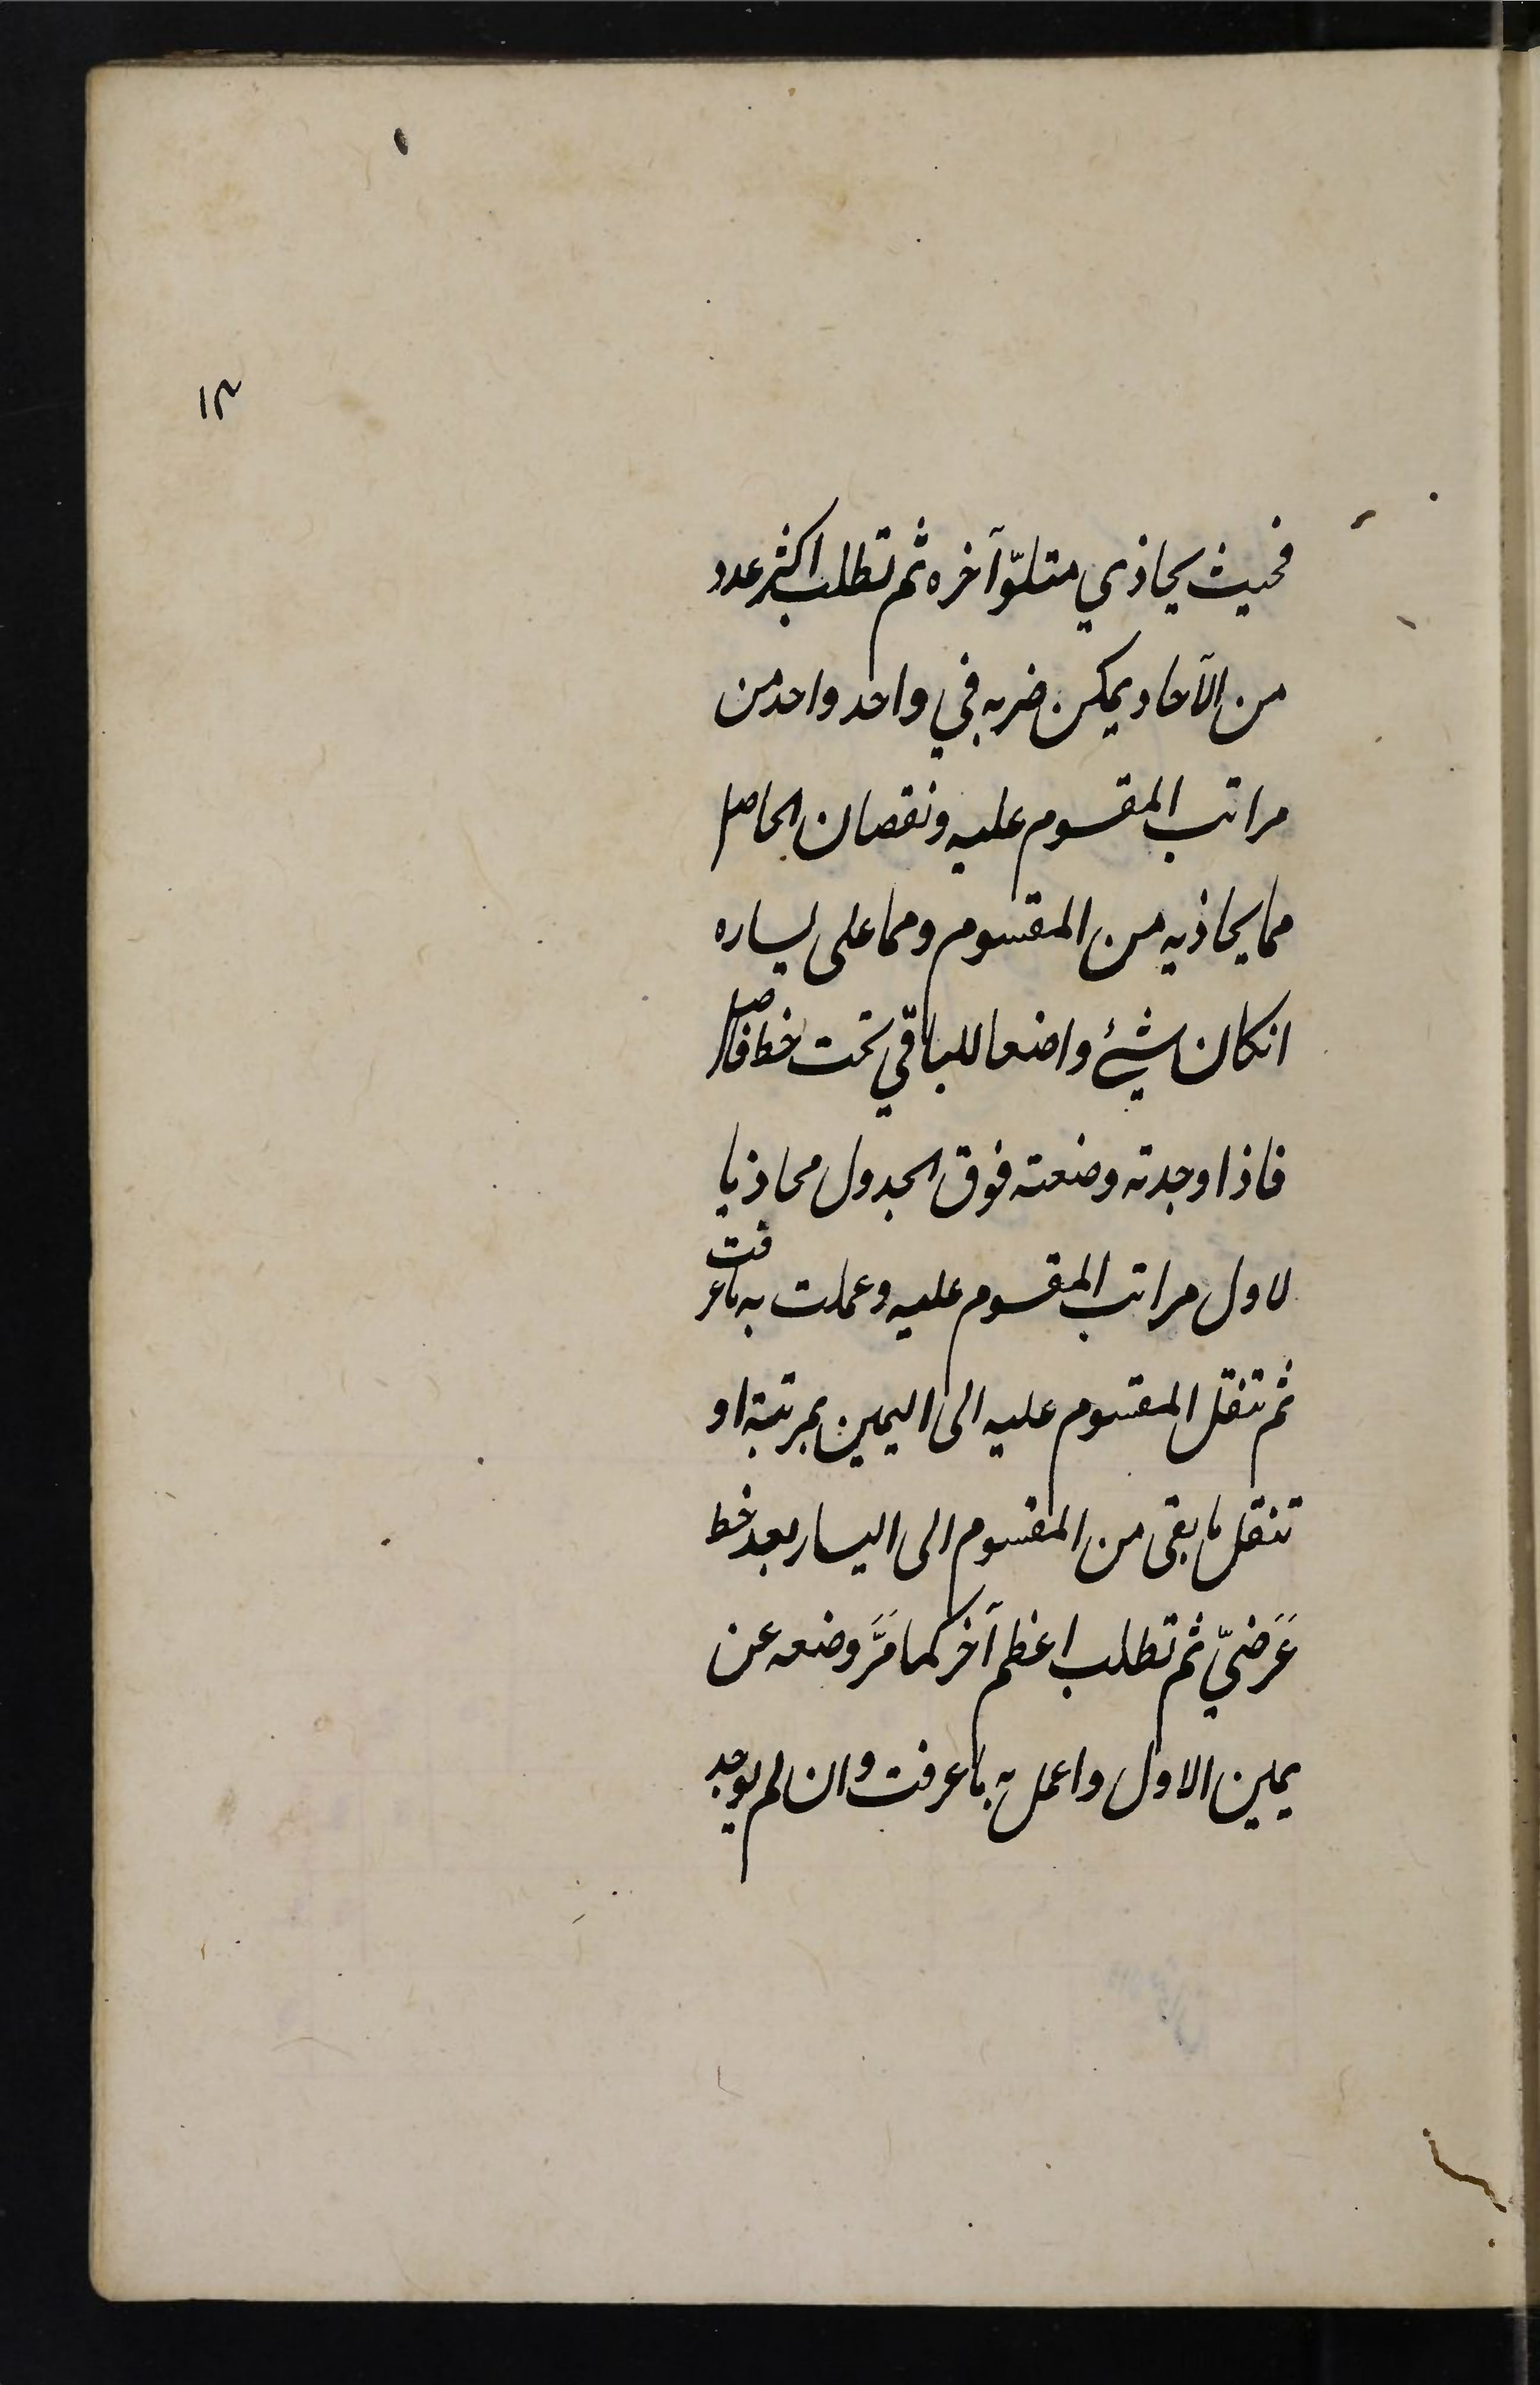 ١٣
فحيث يحاذي متلوّ آخره ثم تطلب اكثر عدد
من الآحاد يمكن ضربه في واحد واحد من
مراتب المقسوم عليه ونقصان الحاصل
مما يحاذيه من المقسوم ومما على يساره
انكان شيئ واضعا للباقي تحت خط فاصل
فاذا وجدته وضعته فوق الجدول محاذيا
لاول مراتب المقسوم عليه وعملت به ما عرفت
ثم تنقل المقسوم عليه الى اليمين بمرتبة او
تنقل ما بقى من المقسوم الى اليسار بعد خط
عَرَضيّ ثم تطلب اعظم آخر كما مَرَّ وضعه عن
يمين الاول واعمل به ما عرفت وان لم يوجد